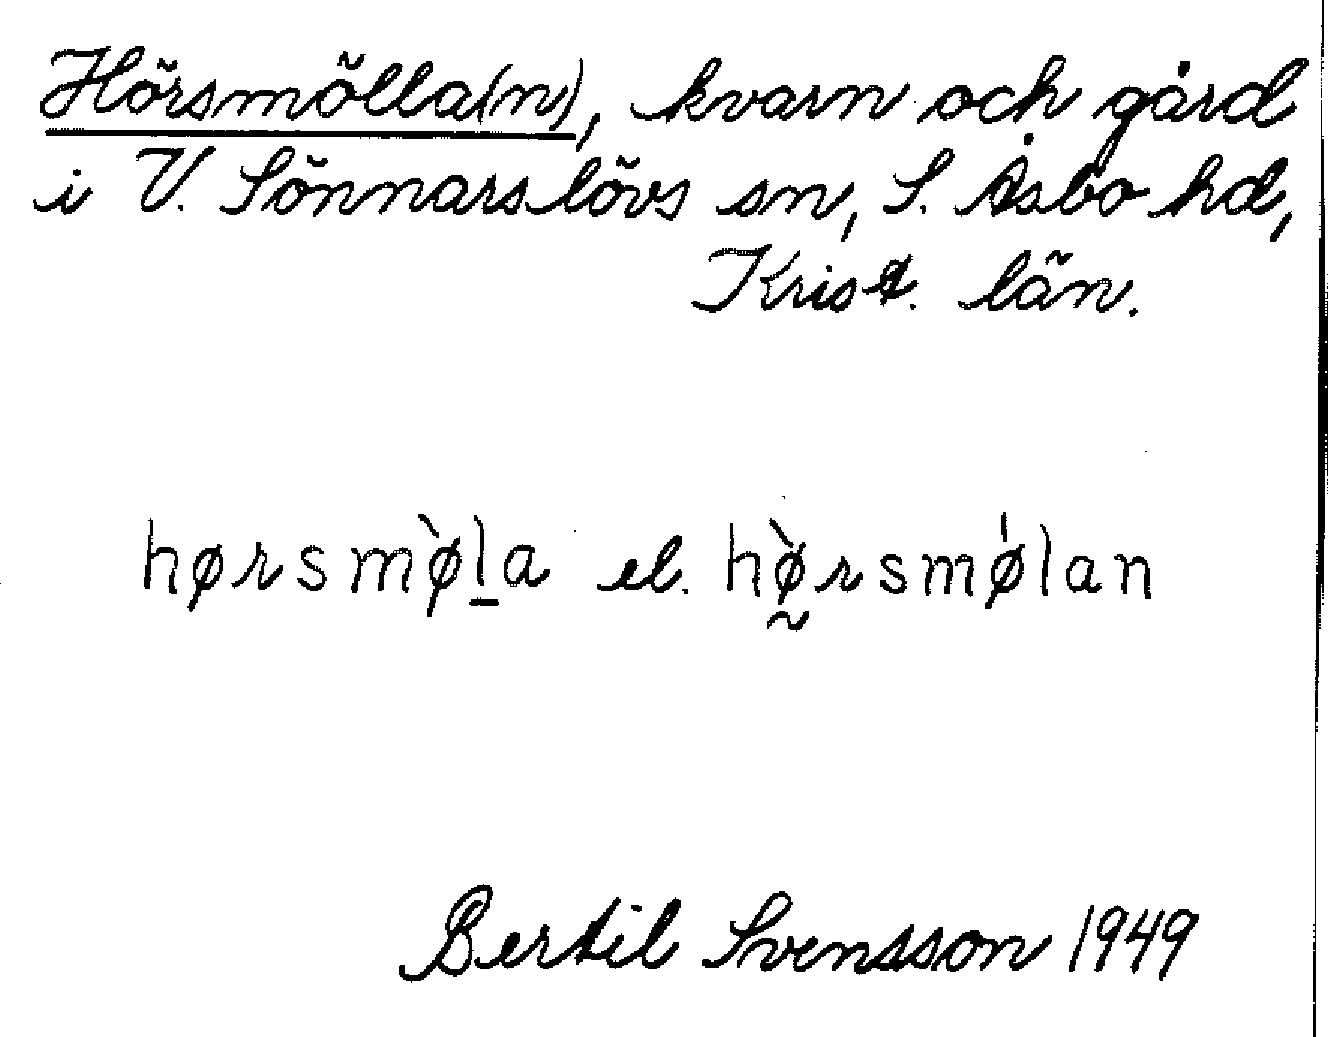 Hörsmölla(n), kvarn och gård
i V. Sönnarslövs sn, S. Åsbo hd,
Krist. län.
hørsmø̀l̠a el. hø̰̀rsmǿlan
Bertil Svensson 1949